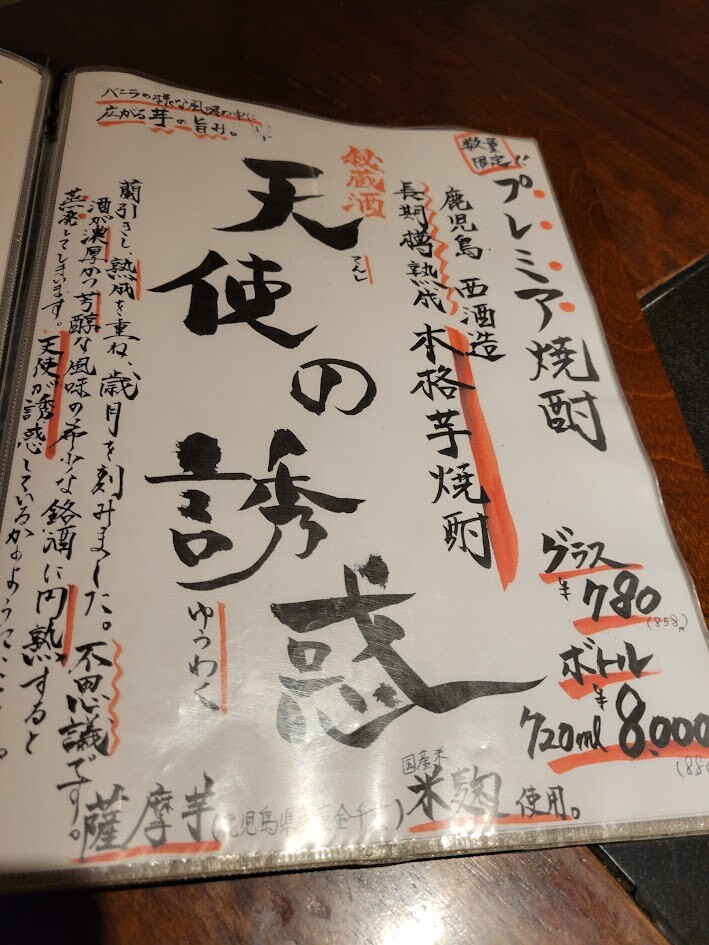 数量
限定!!
プレミア焼酎
鹿児島 西酒造
長期樽熟成 本格芋焼酎
グラス
¥780
(858)
ボトル
720ml ¥8,000
(88
バニラの様な風味の中に
広がる芋の旨み。
秘蔵酒
天使の誘惑
てんし
ゆうわく
蘭引きし、熟成を重ね、歳月を刻みました。不思議です。
酒が濃厚かつ芳醇な風味の希少な銘酒に円熟すると
蒸発してしまいます。天使が誘惑しているかのように
薩摩芋(鹿児島県産黄金千貫)
国産米
米麹使用。